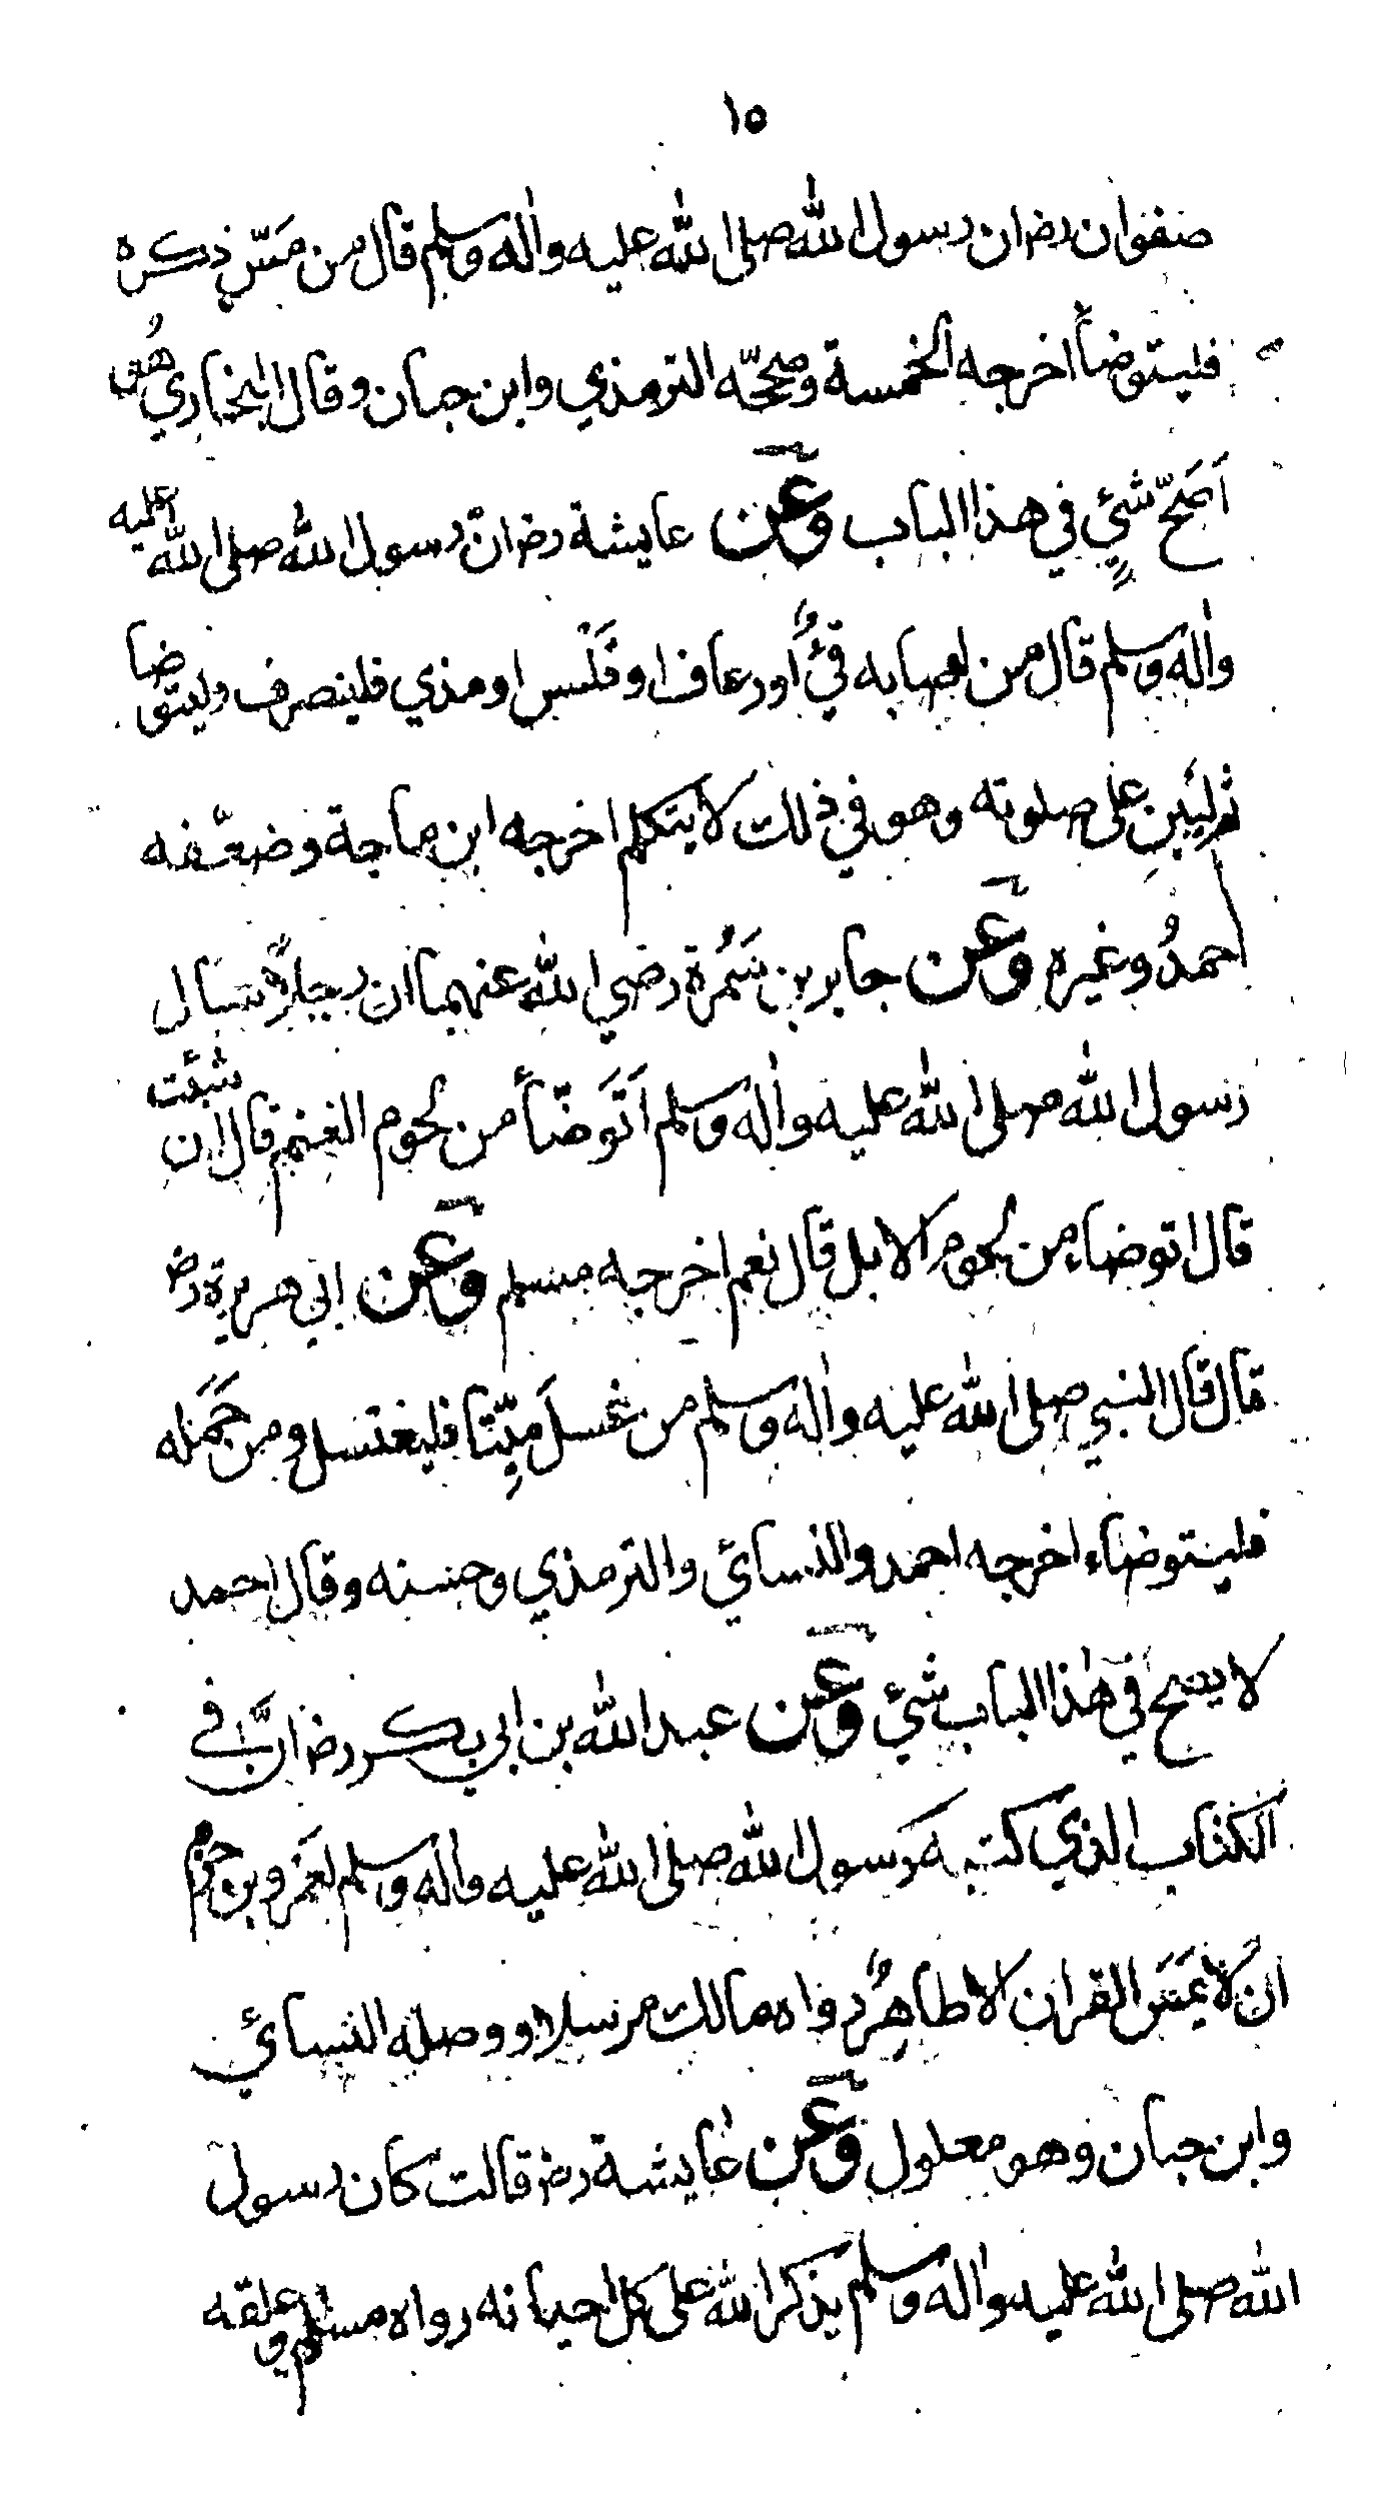 ١٥
صفوان رض ان رسول الله صلى الله عليه واٰله وسلم قال من مَسّ ذكره
فليتوضأ اخرجه الخمسة وصححّه الترمذي وابن حبان وقال البخاري هُو
اَصَحّ شيْءٍ في هذا الباب وعن عايشة رض انّ رسول الله صلى الله عليه
واٰله وسلم قال من اصابه قيْءٌ اَورعاف او قَلَس او مذي فلينصرف وليتوضا
ثم ليَبنِ على صلوته وهو في ذلك لا يتكلم اخرجه ابن ماجة وضعّفه
احمدُ وغيره وعن جابر بن سَمُرة رضي الله عنهما ان رجلاً سَال
رسول الله صلى الله عليه واٰله وسلم اَتَوَضّأ من لحوم الغنم قال ان شئت
قال اتوضاء من لحوم الابل قال نعم اخرجه مسلم وعن ابي هريرة رض
قال قال النبي صلى الله عليه واٰله وسلم من غسلَ ميِّتًا فليغتسل ومن حَمَله
فليتوضاء اخرجه احمد والنسائي والترمذي وحسنه وقال احمد
لا يصح في هٰذا الباب شيْ وعن عبد الله بن ابي بكر رض انَّ في
الكتاب الذي كتبه رسول الله صلى الله عليه واٰله وسلم لعَمرو بن حزم
انْ لا يمَسَ القران الا طاهِرٌ رواه مالك مرسلا ووصله النسائي
وابن حبان وهو معلول وعن عايشة رض قالت كان رسول
الله صلى الله عليه واٰله وسلم يذكر الله على كل احيانه رواه مسلم وعلقه